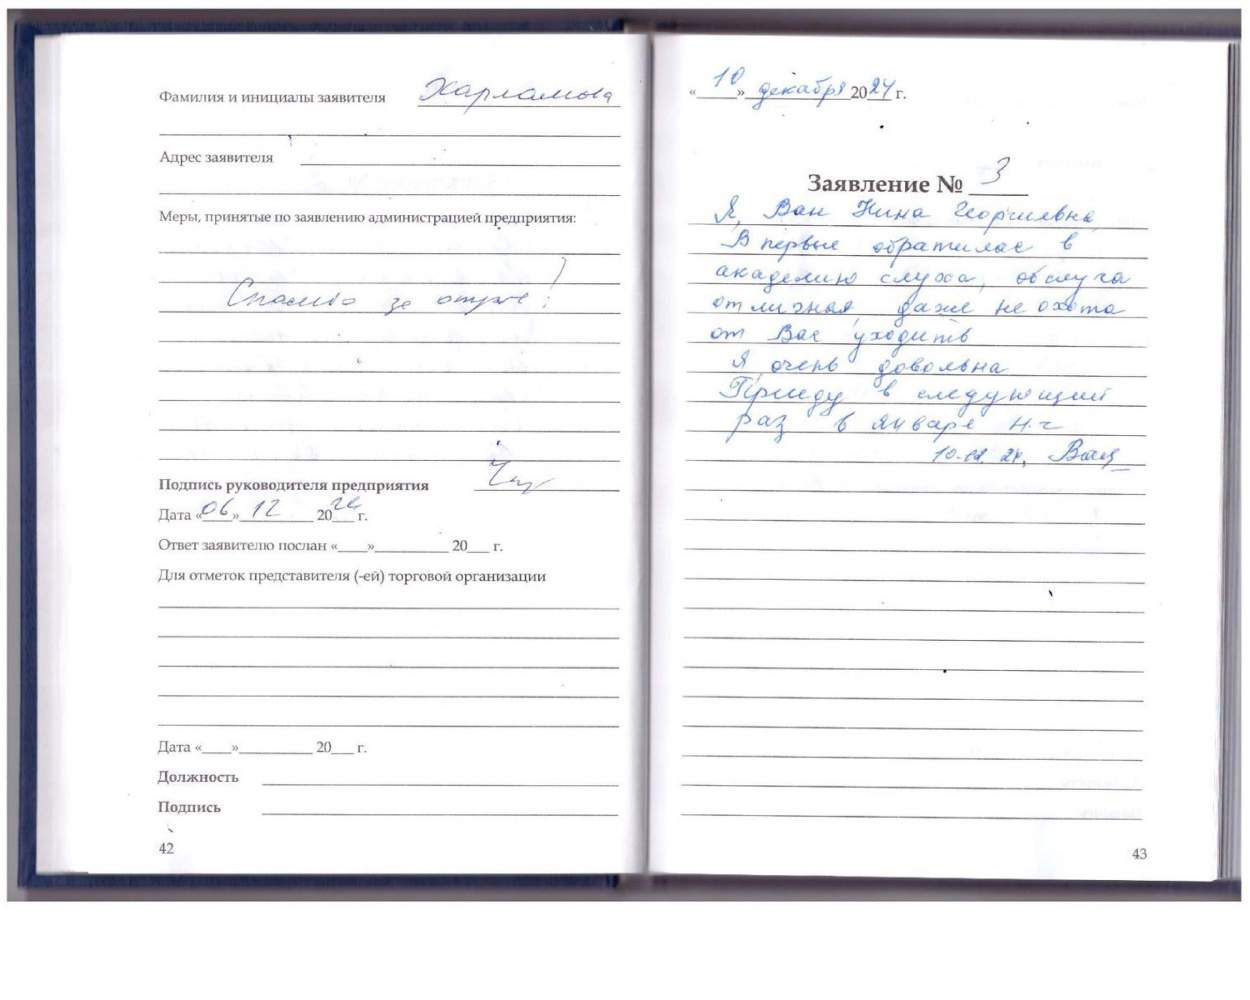 Фамилия и инициалы заявителя Харламова
Адрес заявителя
Меры, принятые по заявлению администрацией предприятия:
Спасибо за отзыв!
Подпись руководителя предприятия
Дата «06» 12 2024 г.
Ответ заявителю послан «____»__________ 20___ г.
Для отметок представителя (-ей) торговой организации
Дата «____»___________ 20___ г.
Должность
Подпись
42
«10» декабря 2024 г.
Заявление № 3
Я, Ван Нина Георгиевна
Впервые обратилас в
академию слуха, обслуга
отличная, даже не охота
от Вас уходить
Я очень довольна
Приеду в следующий
раз в январе н.г
10.12.24, Ван
43